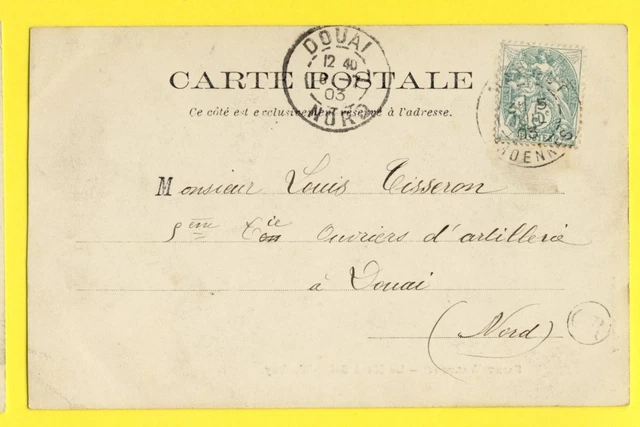 CARTE POSTALE
Ce côté est exclusivement réservé à l'adresse.
DOUAI
12 40
03
NORD
5
03
Monsieur Louis Tisseron
5ème Cie Ouvriers d'artillerie
à Douai
(Nord)